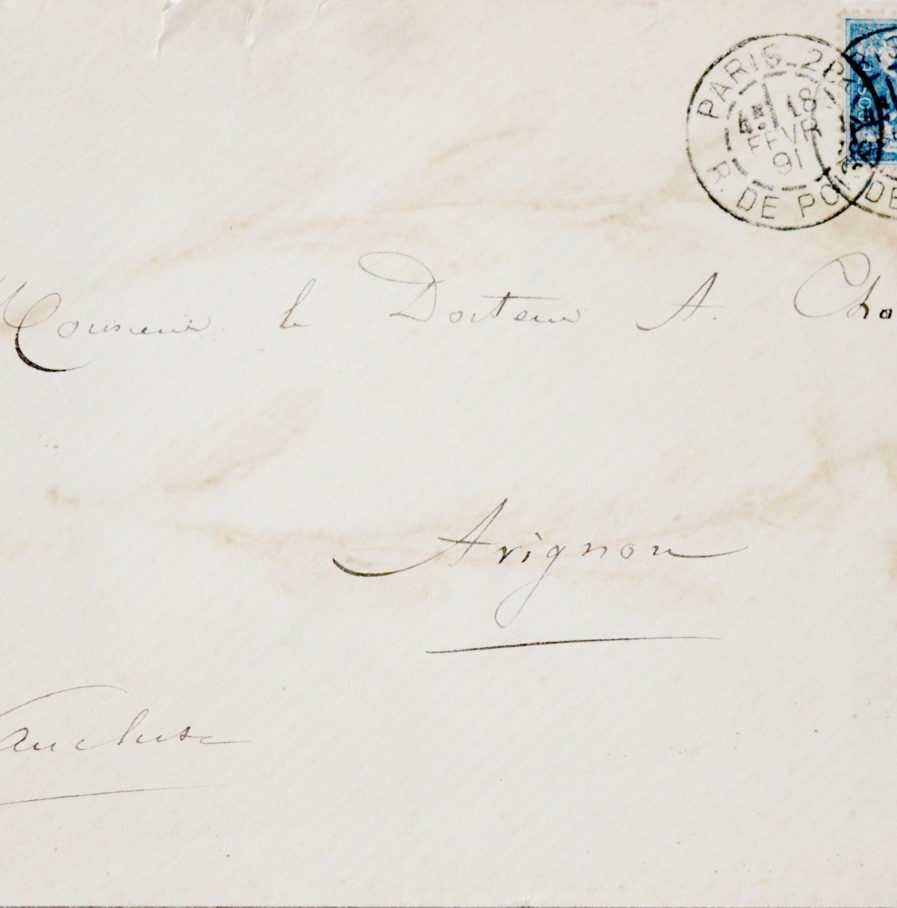 PARIS_28
18
FEVR
91
R. DE POI
DE
Monsieur le Docteur A. Cho
Avignon
Vaucluse